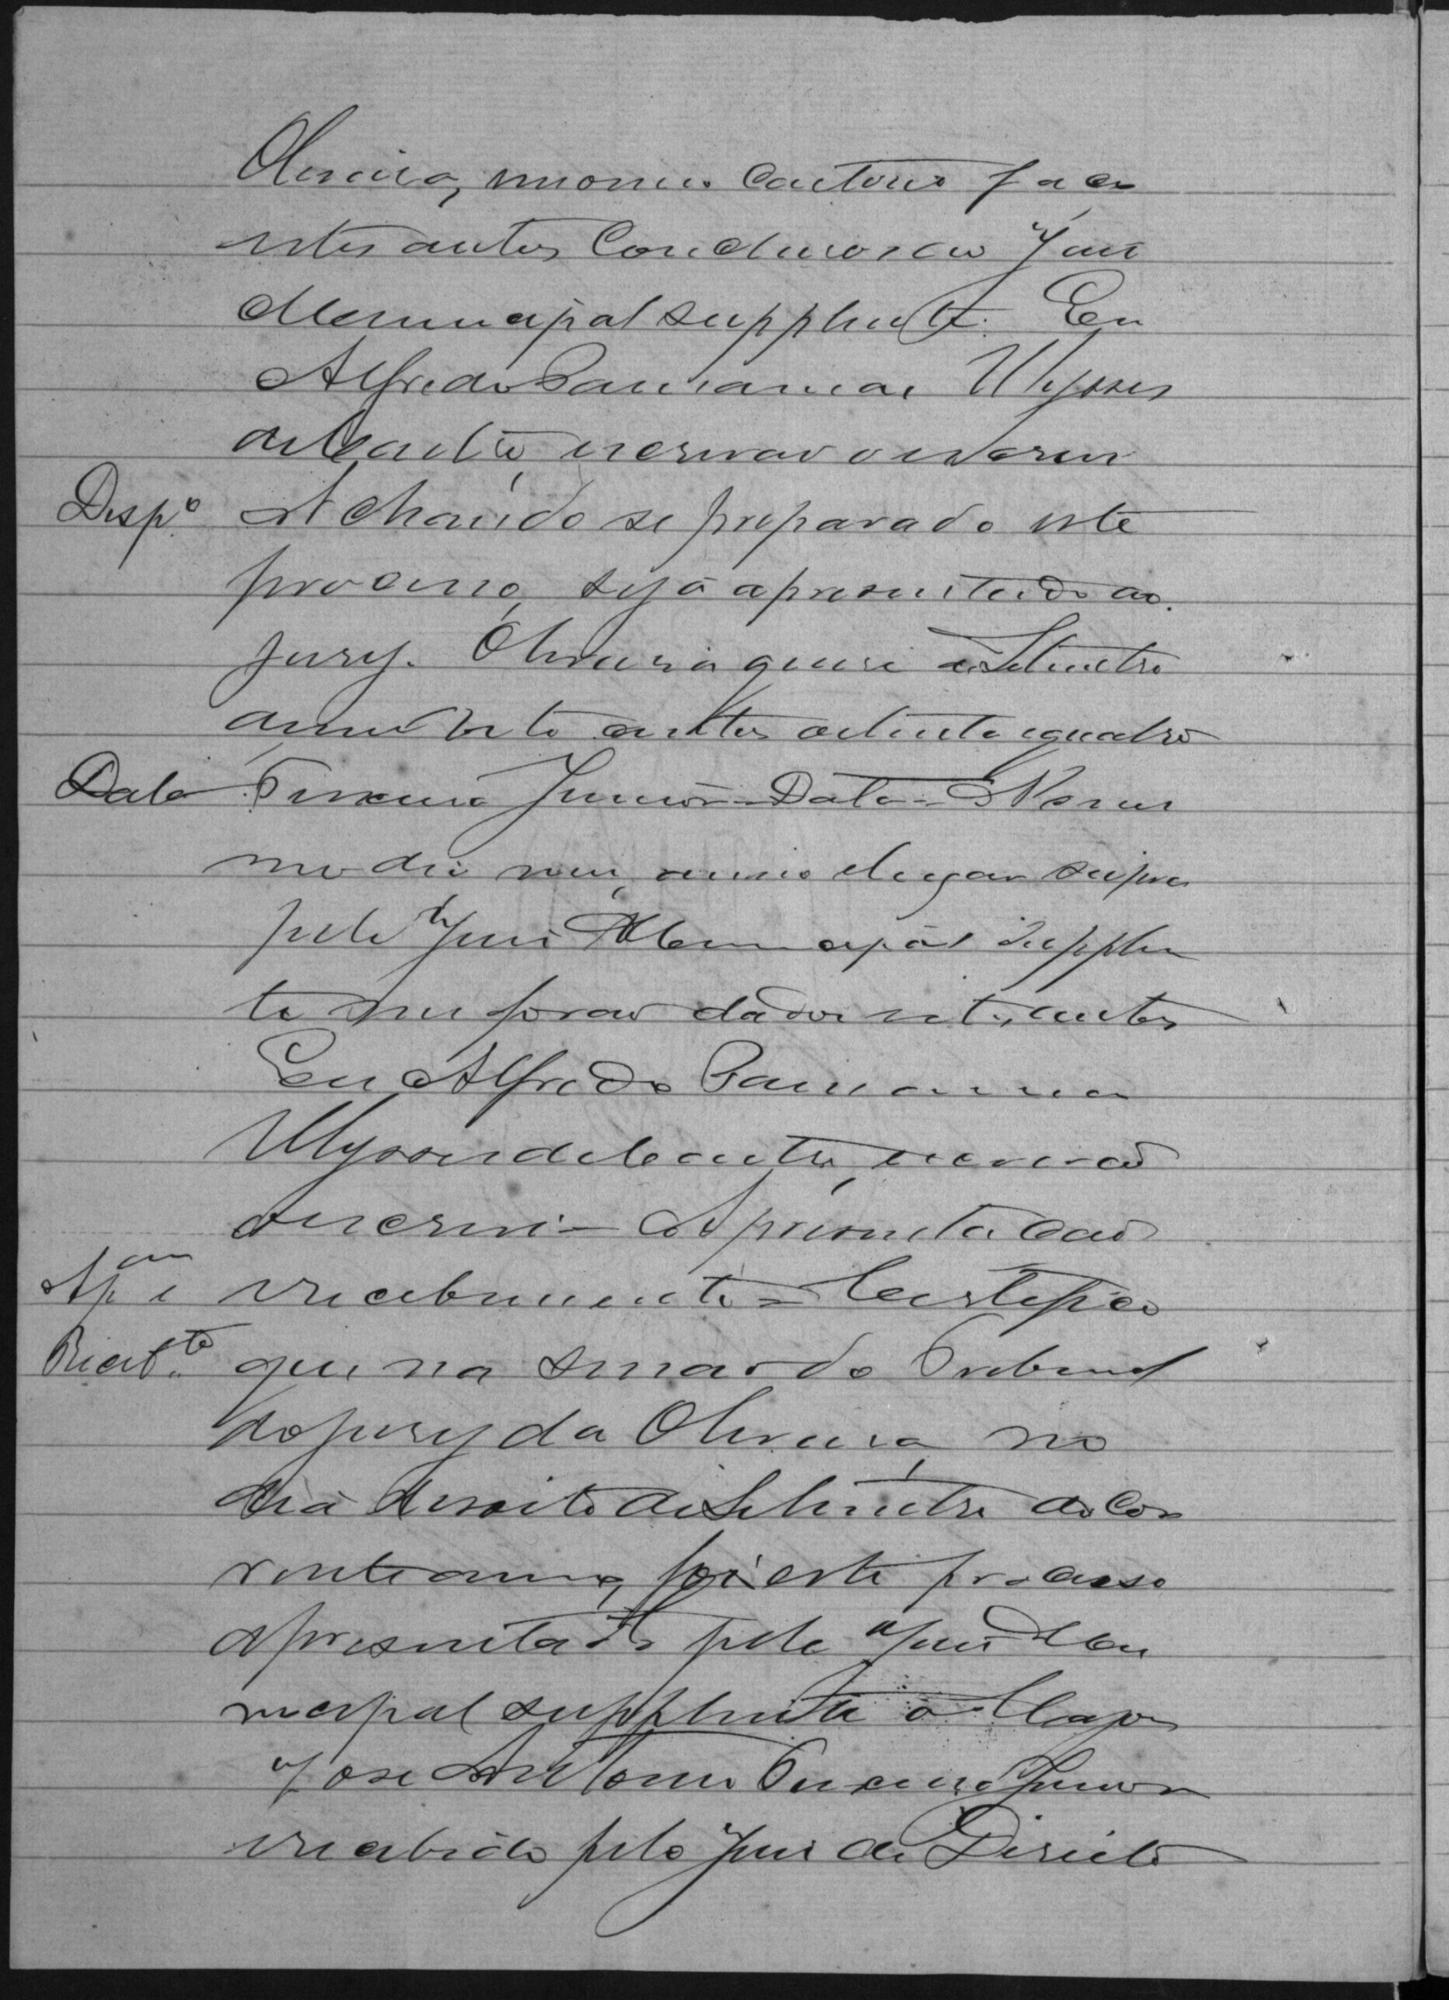 Oliveira, em o meu Cartorio faço
estes autos Conclusos ao Juiz
Municipal supplente. Eu
Alfredo Ulysses
de Castro, escrivão o escrevi
Desp.º Achando se preparado este
processo, seja apresentado ao
jury. Oliveira quinse de Setembro
de mil oito centos oitenta e quatro
Data Teixeira Junior = Data = No mes
mo dia mez, anno e lugar supra
pelo Juiz Municipal Supplen
te me forão dados estes autos
Eu Alfredo
Ulysses de Castro, escrivão
o escrevi = Apresentação
Ap.am e recebimento = Certifico
Receb.to que na do Tribunal
do jury da Oliveira, no
dia desoito de Setembro do Cor
rente anno, foi este processo
apresentado pelo Juiz Mu
nicipal supplente o Major
José Antonio Teixeira Junior
recebido pelo Juiz de Direito